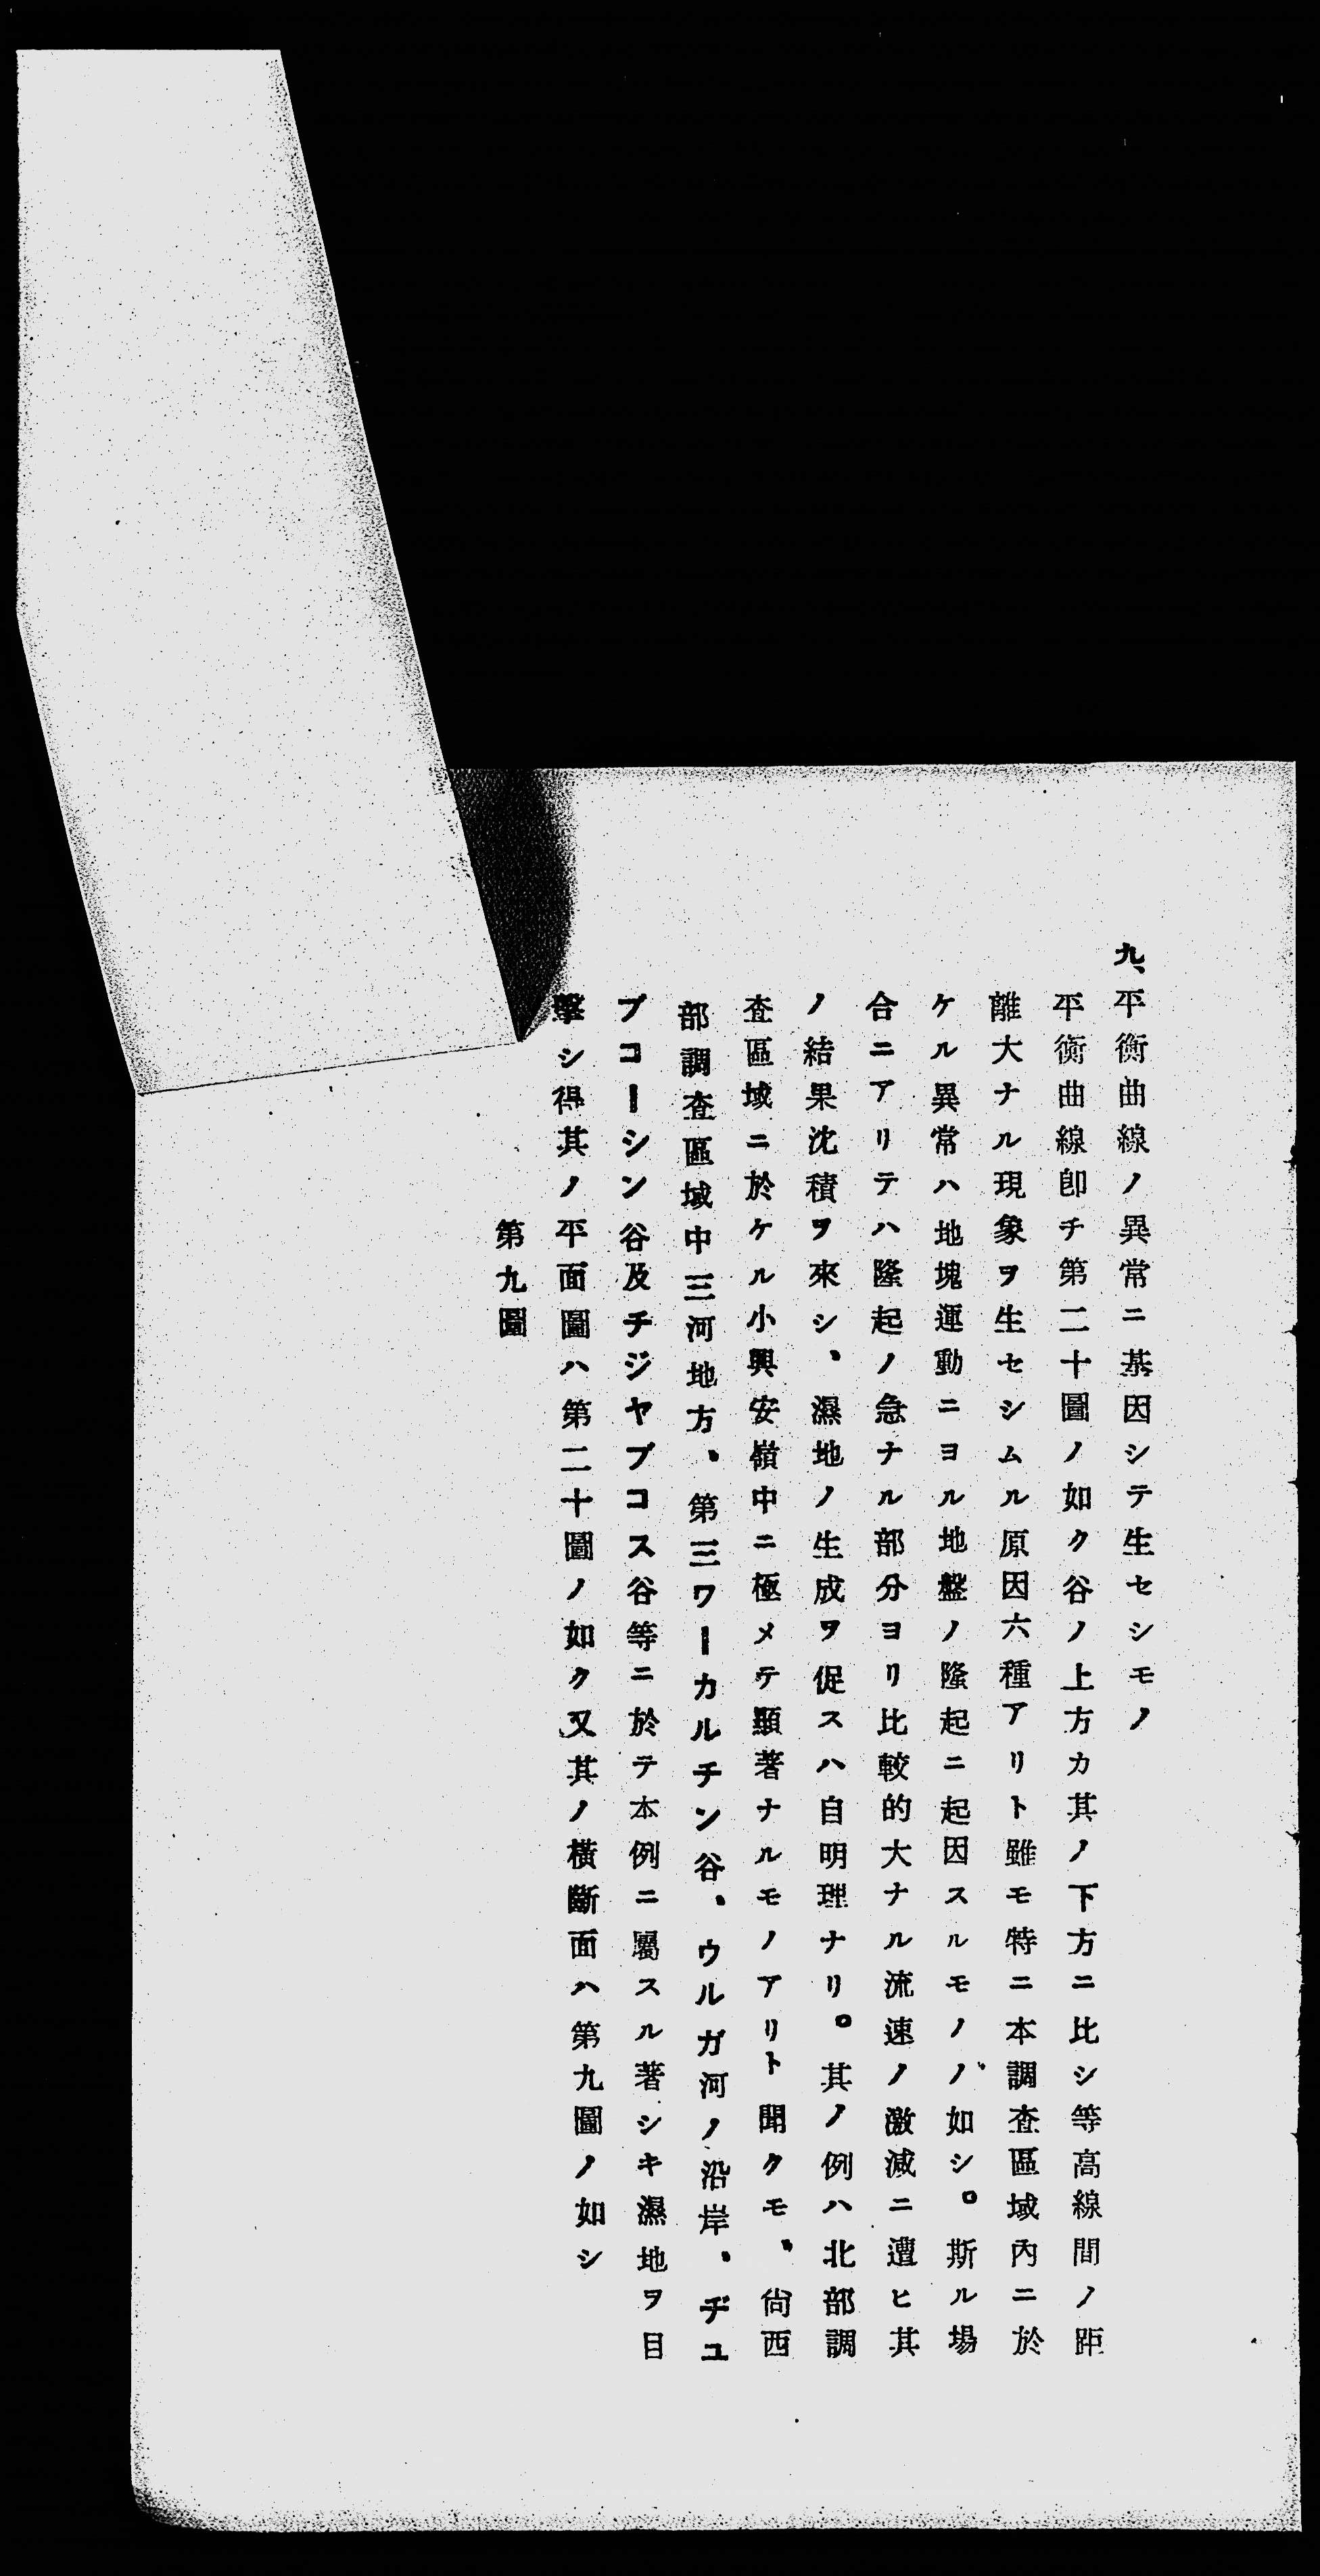 九、平衡曲線ノ異常ニ基因シテ生セシモノ
平衡曲線卽チ第二十圖ノ如ク谷ノ上方カ其ノ下方ニ比シ等高線間ノ距
離大ナル現象ヲ生セシムル原因六種アリト雖モ特ニ本調査區域內ニ於
ケル異常ハ地塊運動ニヨル地盤ノ隆起ニ起因スルモノヽ如シ。斯ル場
合ニアリテハ隆起ノ急ナル部分ヨリ比較的大ナル流速ノ激減ニ遭ヒ其
ノ結果沈積ヲ來シ、濕地ノ生成ヲ促スハ自明理ナリ。其ノ例ハ北部調
査區域ニ於ケル小興安嶺中ニ極メテ顯著ナルモノアリト聞クモ、尙西
部調査區域中三河地方、第三ワーカルチン谷、ウルガ河ノ沿岸、ヂユ
ブコーシン谷及チジヤブコス谷等ニ於テ本例ニ屬スル著シキ濕地ヲ目
擊シ得其ノ平面圖ハ第二十圖ノ如ク又其ノ橫斷面ハ第九圖ノ如シ
第九圖